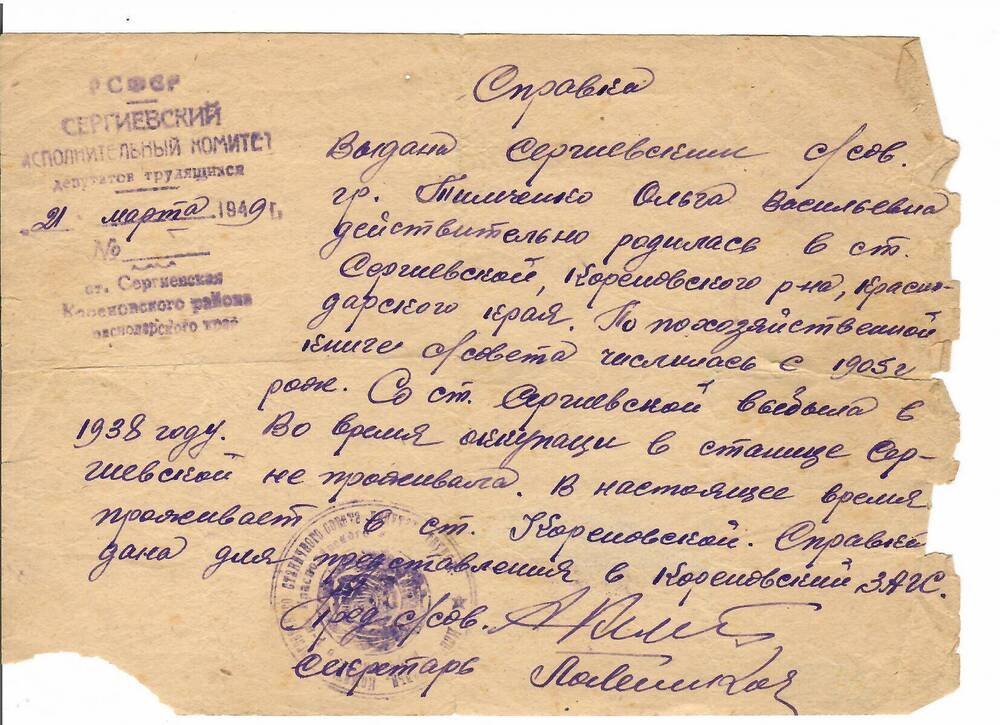 РСФСР
СЕРГИЕВСКИЙ
ИСПОЛНИТЕЛЬНЫЙ КОМИТЕТ
депутатов трудящихся
„21 марта 1949 г.
№
ст. Сергиевская
Кореновского района
Краснодарского края
Справка
Выдана Сергиевским с/сов.
гр. Тимченко Ольга Васильевна
действительно родилась в ст.
Сергиевской, Кореновского р-на, Красно-
дарского края. По похозяйственной
книге с/совета числилась с 1905 г
рож. Со ст. Сергиевской выбыла в
1938 году. Во время оккупаци в станице Сер-
гиевской не проживала. В настоящее время
проживает в ст. Кореновской. Справка
дана для представления в Кореновский ЗАГС.
Пред с/сов.
Секретарь